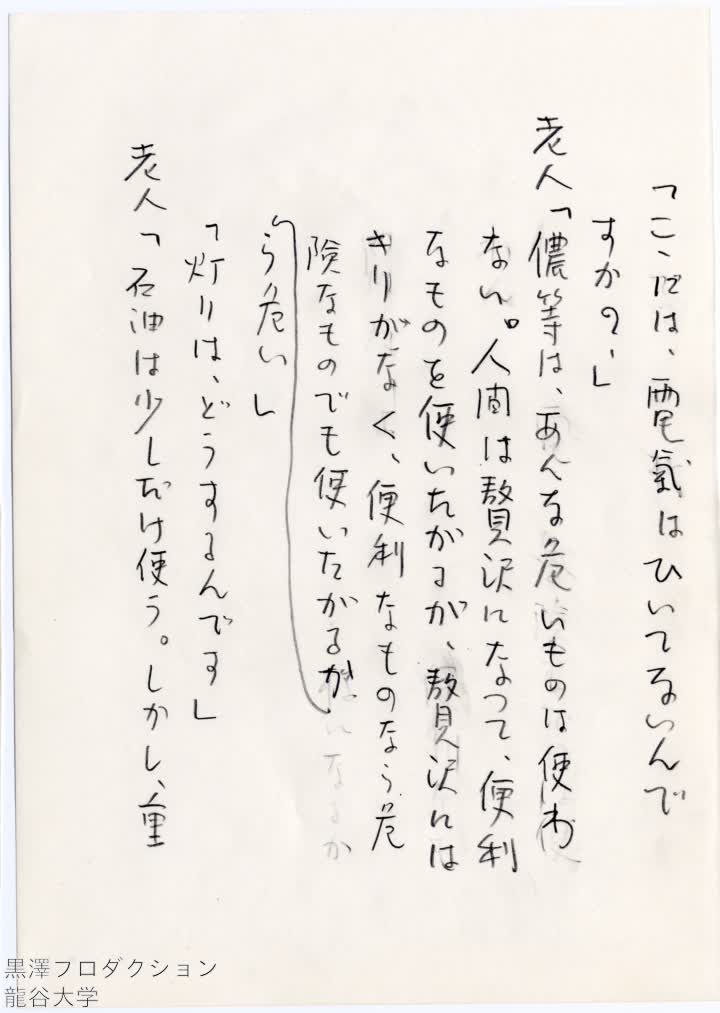 「ここでは、電氣はひいてないんで
すかの、」
老人「儂等は、あんな危いものは使わ
ない。人間は贅沢になって、便利
なものを使いたがるが、贅沢には
きりがなく、便利なものなら危
険なものでも使いたがるが
になるか
ら危い」
「灯りは、どうするんです」
老人「石油は少しだけ使う。しかし、重
黒澤プロダクション
龍谷大学